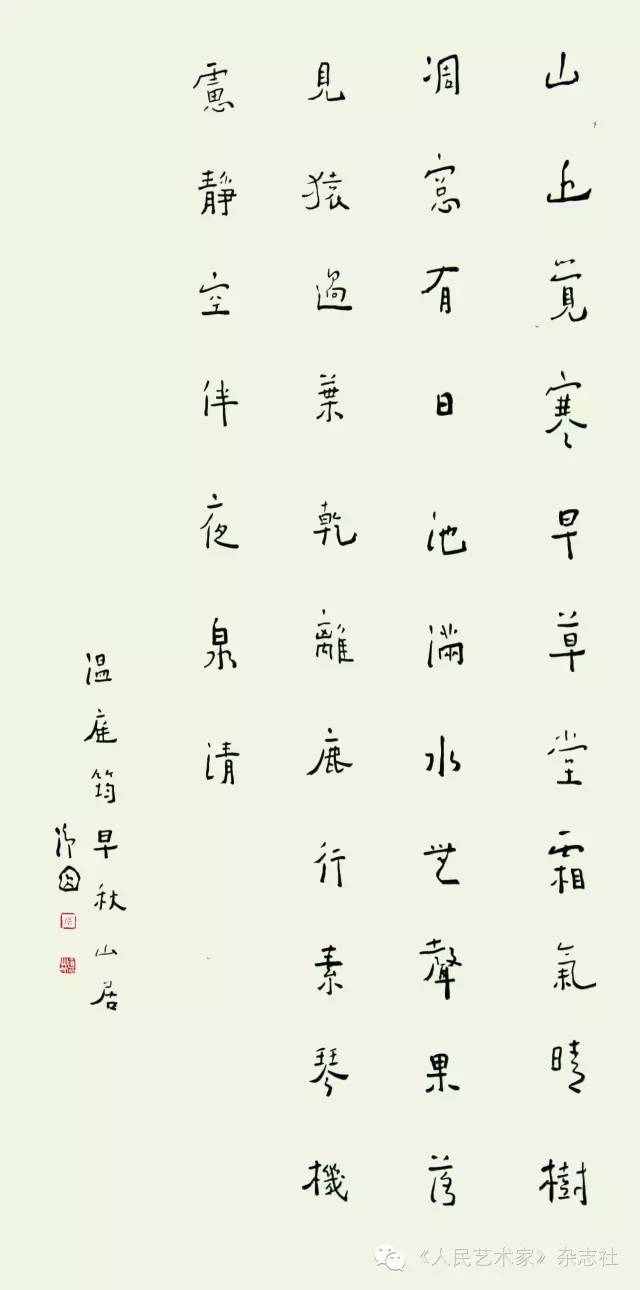 山近覺寒早草堂霜氣晴樹
凋窓有日池滿水無聲果落
見猿過葉乾離鹿行素琴機
慮靜空伴夜泉清
温庭筠早秋山居
《人民艺术家》杂志社